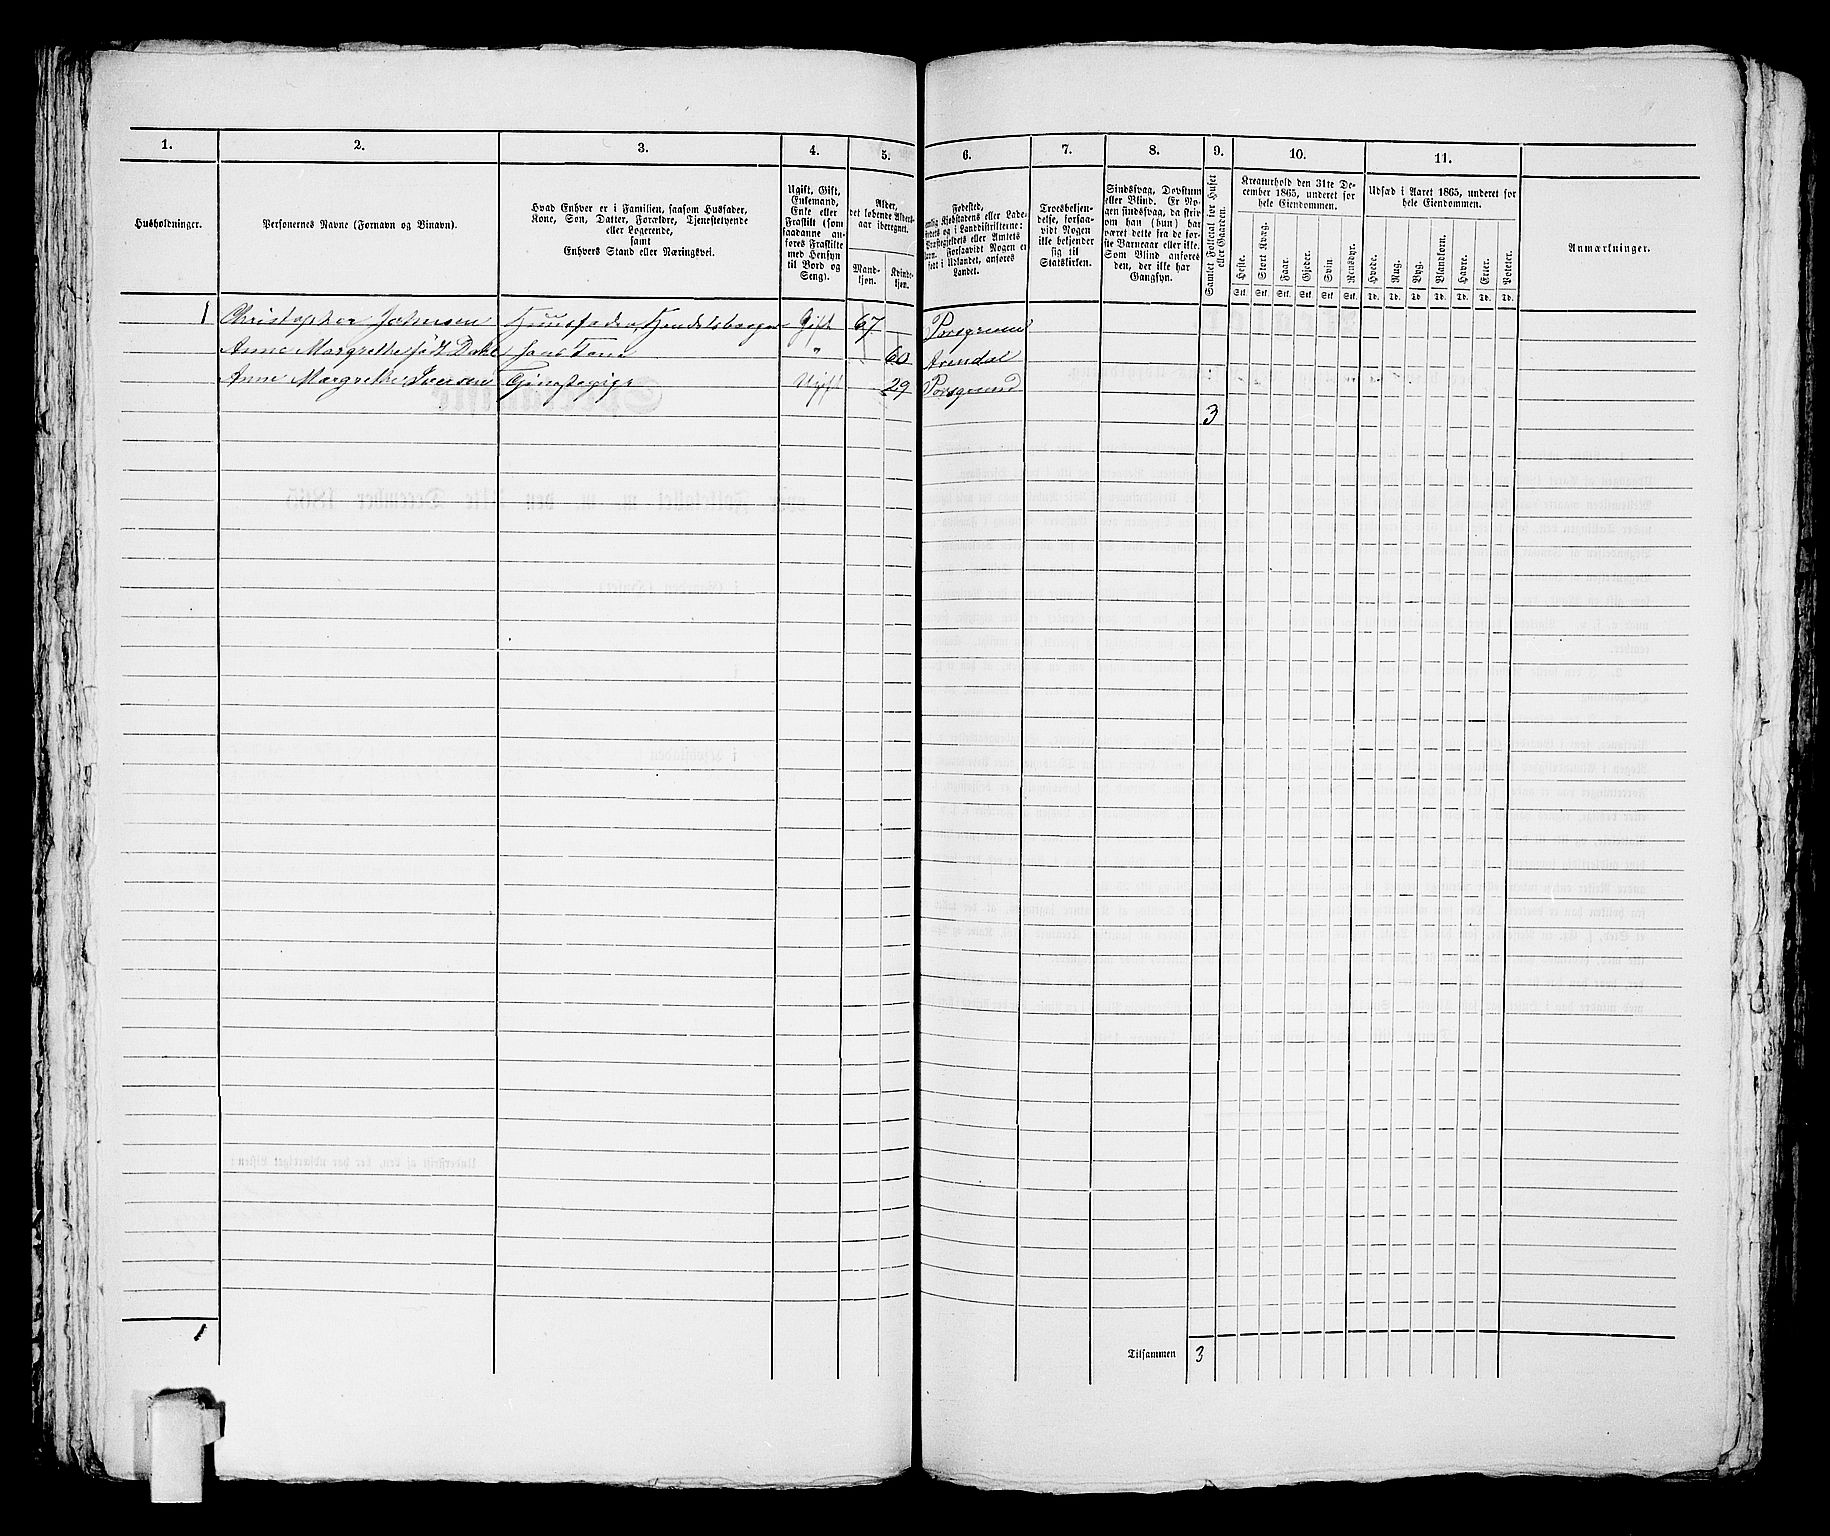 1. 2. 3. 4. 5. 6. 7. 8. 9. 10. 11.
Husholdninger.
Personernes Navne (Fornavn og Binavn).
Hvad Enhver er i Familien, saasom Husfader,
Kone, Søn, Datter, Forældre, Tjenestetyende
eller Logerende,
samt
Enhvers Stand eller Næringsvei.
Ugift, Gift,
Enkemand,
Enke eller
Fraskilt (som
saadanne an-
føres Fraskilte
med Hensyn
til Bord og
Seng).
Alder,
det løbende Alders-
aar iberegnet.
Mand-
kjøn.
Kvinde-
kjøn.
Fødested,
Forsaavidt Nogen er
født i Udlandet, anføres
Landet.
Troesbekjen-
delse, forsaa-
vidt Nogen
ikke bekjender
sig til
Statskirken.
Sindssvag, Døvstum
eller Blind. Er No-
gen sindssvag, da skriv
om han (hun) har
været dette fra de før-
ste Barneaar eller ikke.
Som Blind anføres
den, der ikke har
Gangsyn.
Samlet Folketal for Huset
eller Gaarden.
Kreaturhold den 31te De-
cember 1865, underet for
hele Eiendommen.
Heste. Stort Kvæg. Faar. Gjeder. Svin Rensdyr.
Stk. Stk. Stk. Stk. Stk. Stk.
Udsæd i Aaret 1865, underet for
hele Eiendommen.
Hvede. Rug. Byg. Blandkorn. Havre. Erter. Poteter.
Td. Td. Td. Td. Td. Td. Td.
Anmærkninger.
1 Christopher Johnsen Huusfader, Gift 67 Porsgrund
Anne Margrethe født Dahl hans Kone " 60 Arendal
Anne Margrethe Iversen Tjenestepige Ugift 29 Porsgrund
3
1 Tilsammen 3